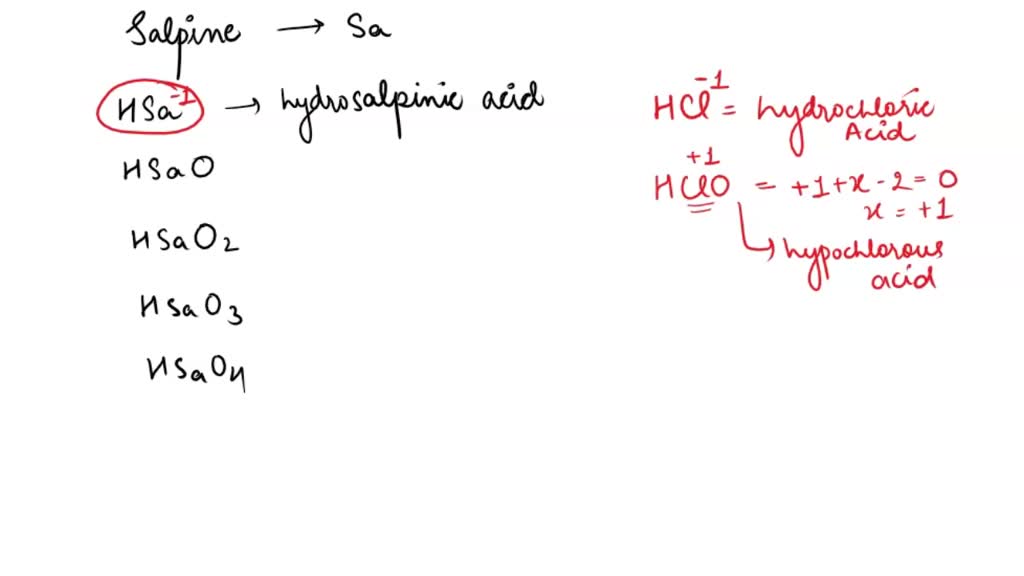 Salpine → Sa
HSa⁻¹ → hydrosalpinic acid
HSaO
HSaO₂
HSaO₃
HSaO₄
HCl⁻¹ = hydrochloric
Acid
+1
HClO = +1+x-2=0
x = +1
↳ hypochlorous
acid